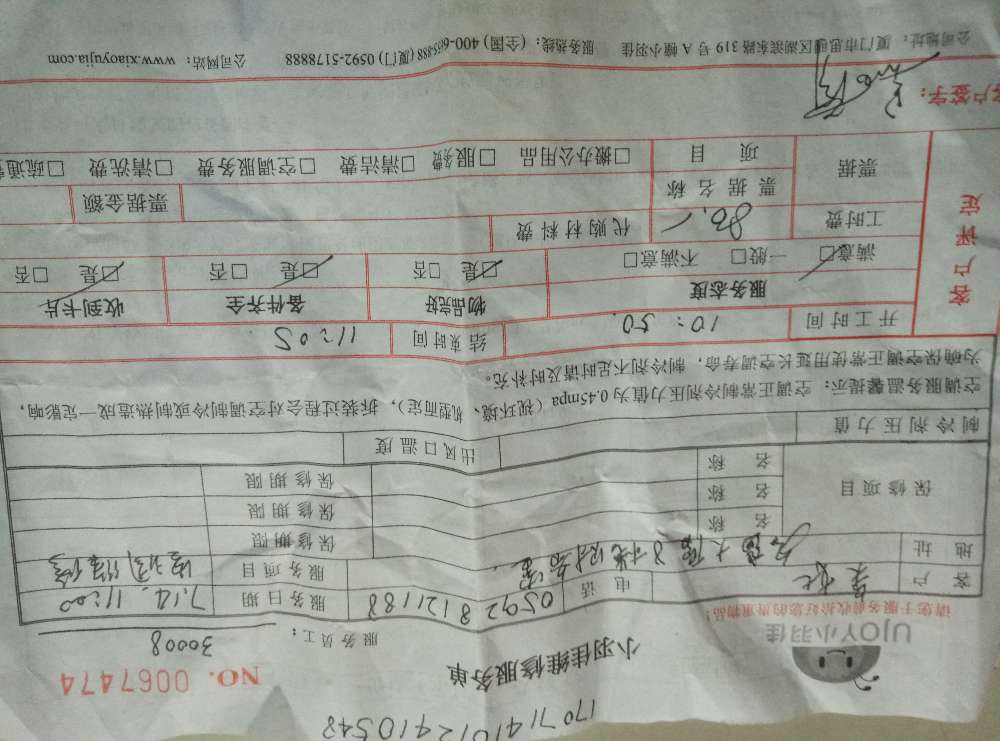 1707141012410548
UJOY小羽佳
小羽佳维修服务单
NO. 0067474
请您于服务前收拾好您的贵重物品!
服务员工: 30008
客户 电话 0592 8121188 服务日期 7.14. 11:00
地址 服务项目 空调维修
保修项目 名称 保修期限
名称 保修期限
名称 保修期限
制冷剂压力值 出风口温度
空调服务温馨提示:空调正常制冷剂压力值为0.45mpa(视环境、机型而定),拆装过程会对空调制冷或制热造成一定影响,
为确保空调正常使用延长空调寿命,制冷剂不足时请及时补充。
客户评定
开工时间 10:50. 结束时间 11:05.
服务态度 物品完好 备件齐全 收到卡片
满意☑ 一般□ 不满意□ ☑是 □否 ☑是 □否 ☑是 □否
工时费 80.- 代购材料费
票据 票据名称 票据金额
项目 □搬办公用品 □服务费 □清洁费 □空调服务费 □清洗费 □疏通费
客户签字:
公司地址:厦门市思明区湖滨东路319号A幢小羽佳 服务热线:(全国)400-6655-888 (厦门)0592-5178888 公司网站:www.xiaoyujia.com